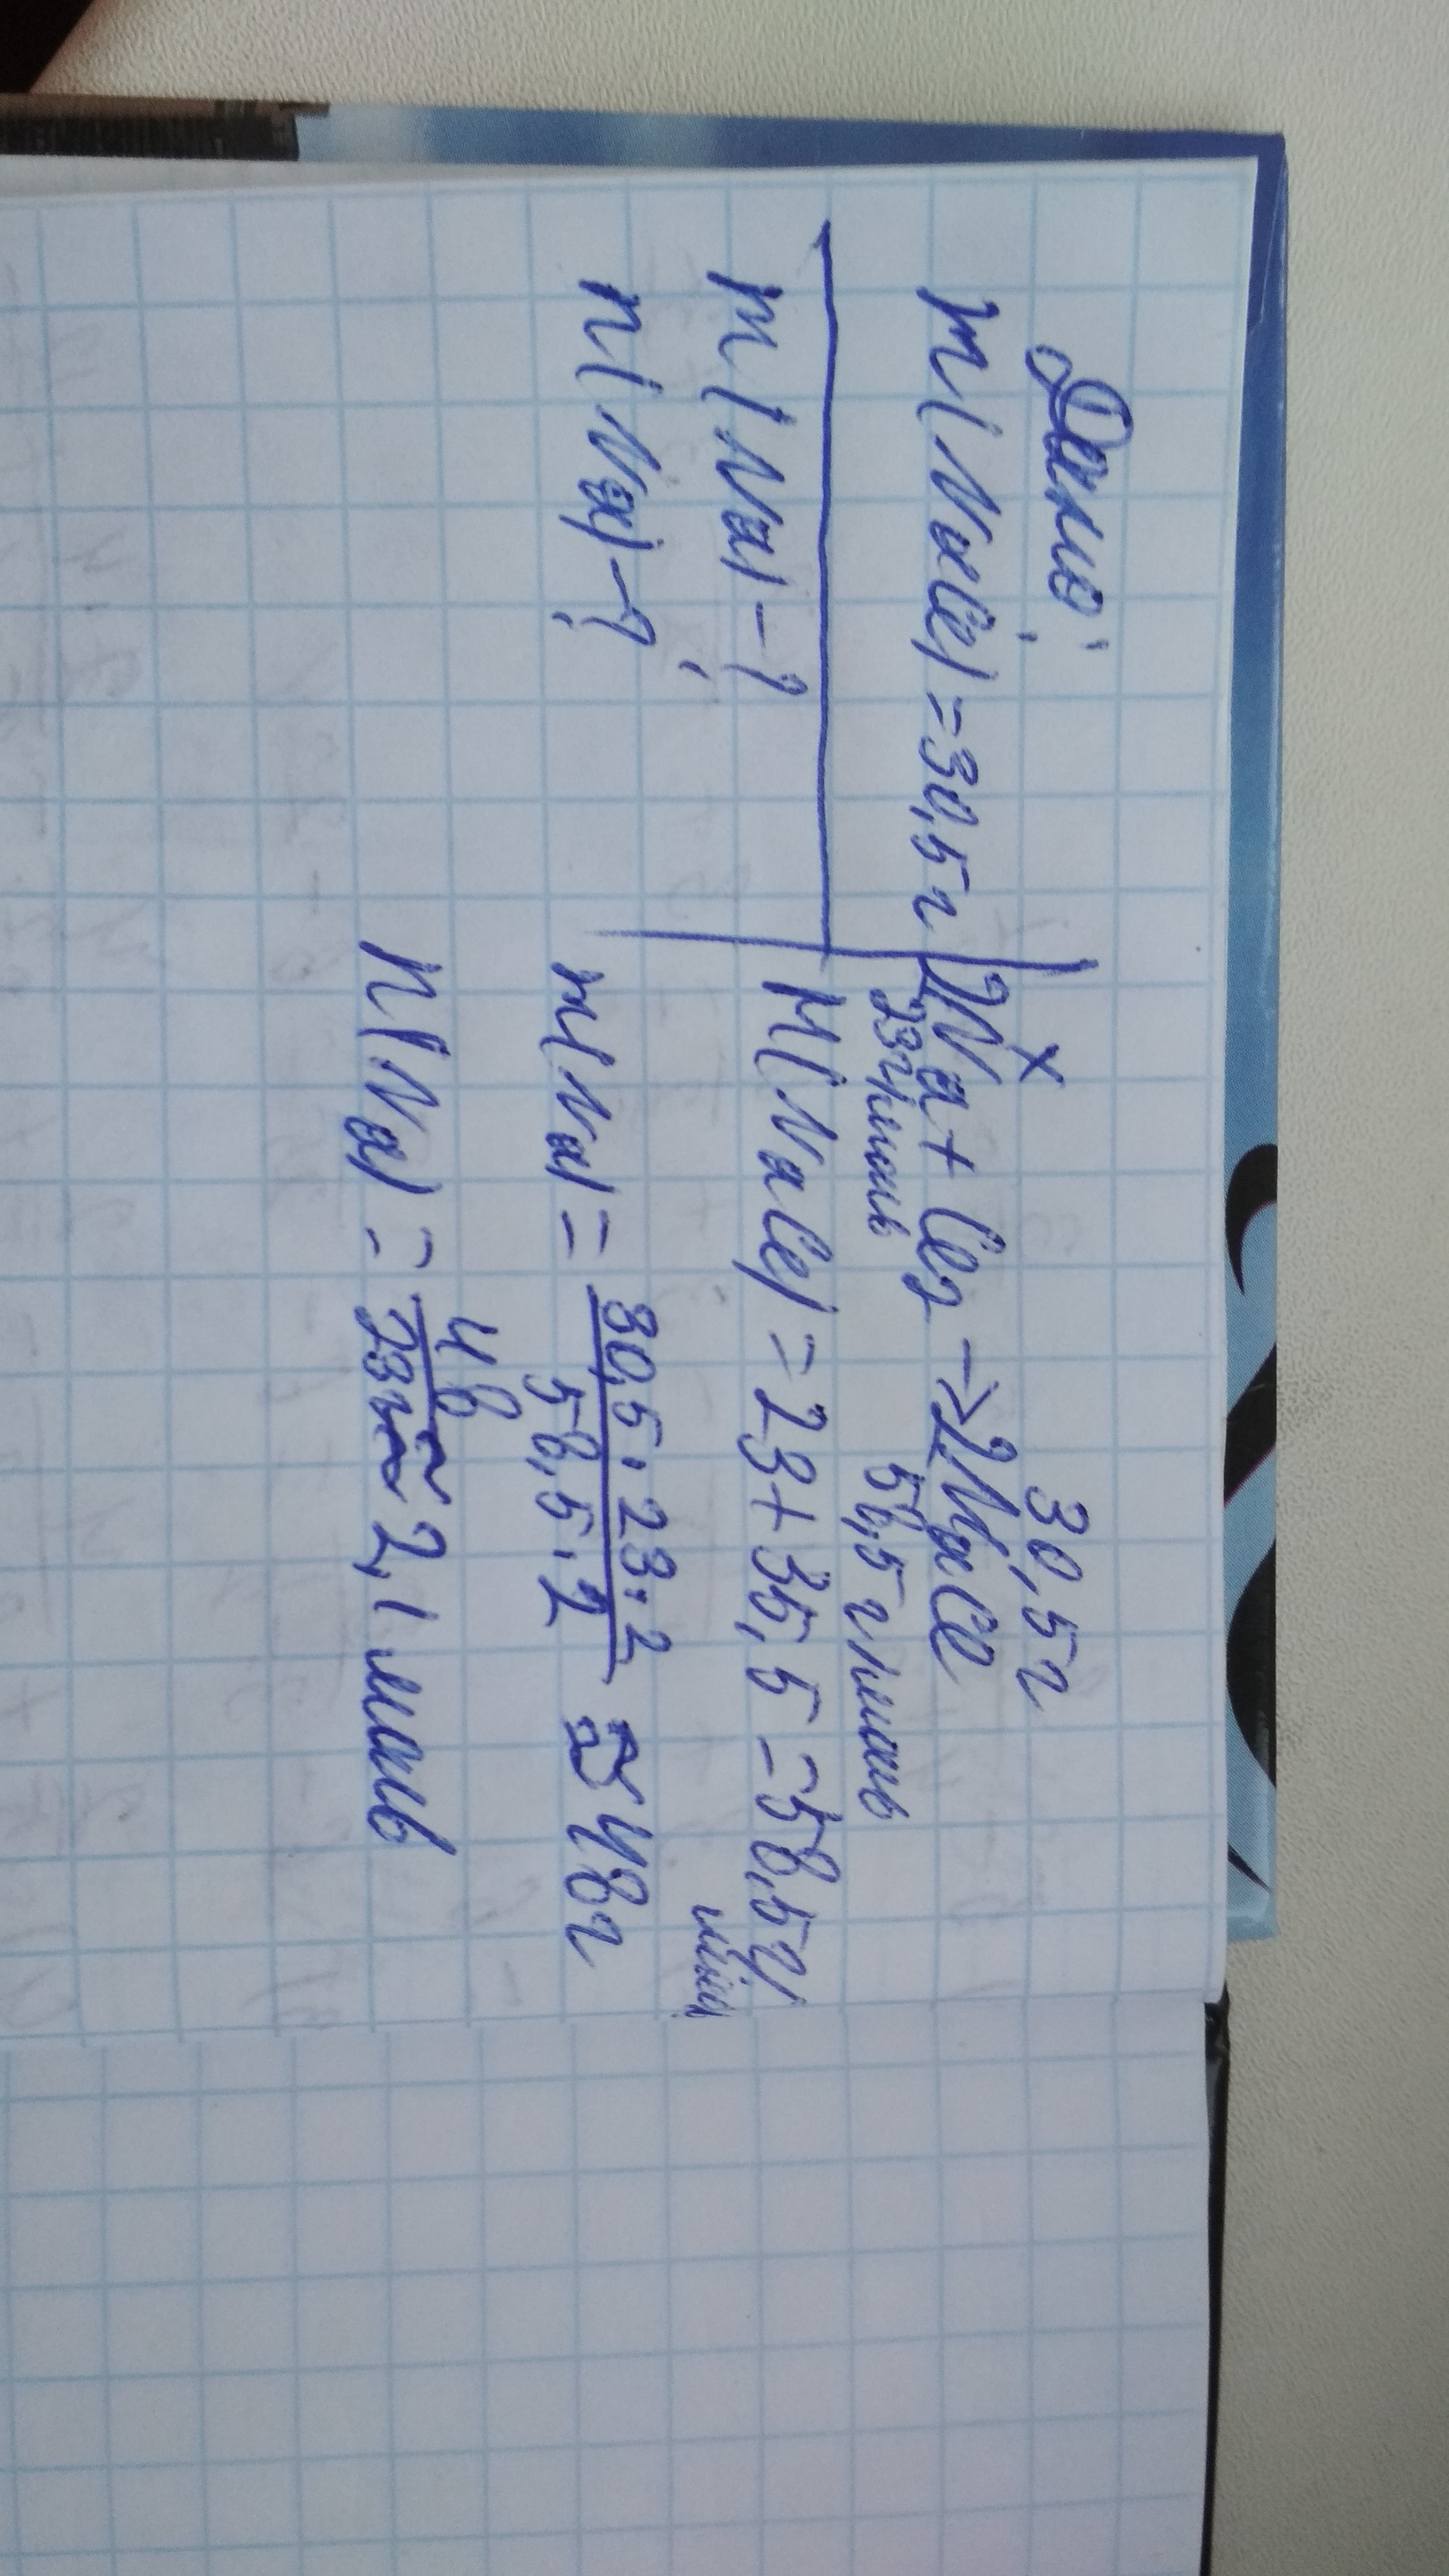 Дано:
m(NaCl)=30,5г
m(Na)-?
n(Na)-?
x 30,5г
2Na+Cl2→2NaCl
23г/моль 58,5г/моль
M(NaCl)=23+35,5=58,5г/
моль
m(Na)=30,5·23·2
58,5·2 ≈48г
n(Na)=48
23 ≈2,1 моль